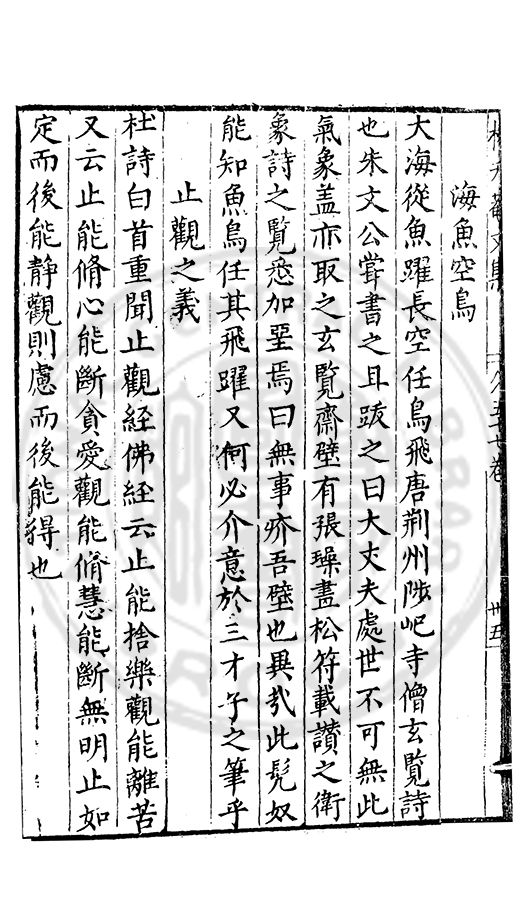 海魚空鳥
大海從魚躍長空任鳥飛唐荆州陟屺寺僧玄覽詩
也朱文公甞書之且跋之曰大丈夫處世不可無此
氣象盖亦取之玄覽齋壁有張璪畫松符載讚之衛
象詩之覽悉加堊焉曰無事疥吾壁也異㢤此髠奴
能知魚鳥任其飛躍又何必介意於三才子之筆乎
止觀之義
杜詩白首重聞止觀經佛經云止能捨樂觀能離苦
又云止能脩心能斷貪愛觀能脩慧能斷無明止如
定而後能静觀則慮而後能得也
五十
卷
卅五